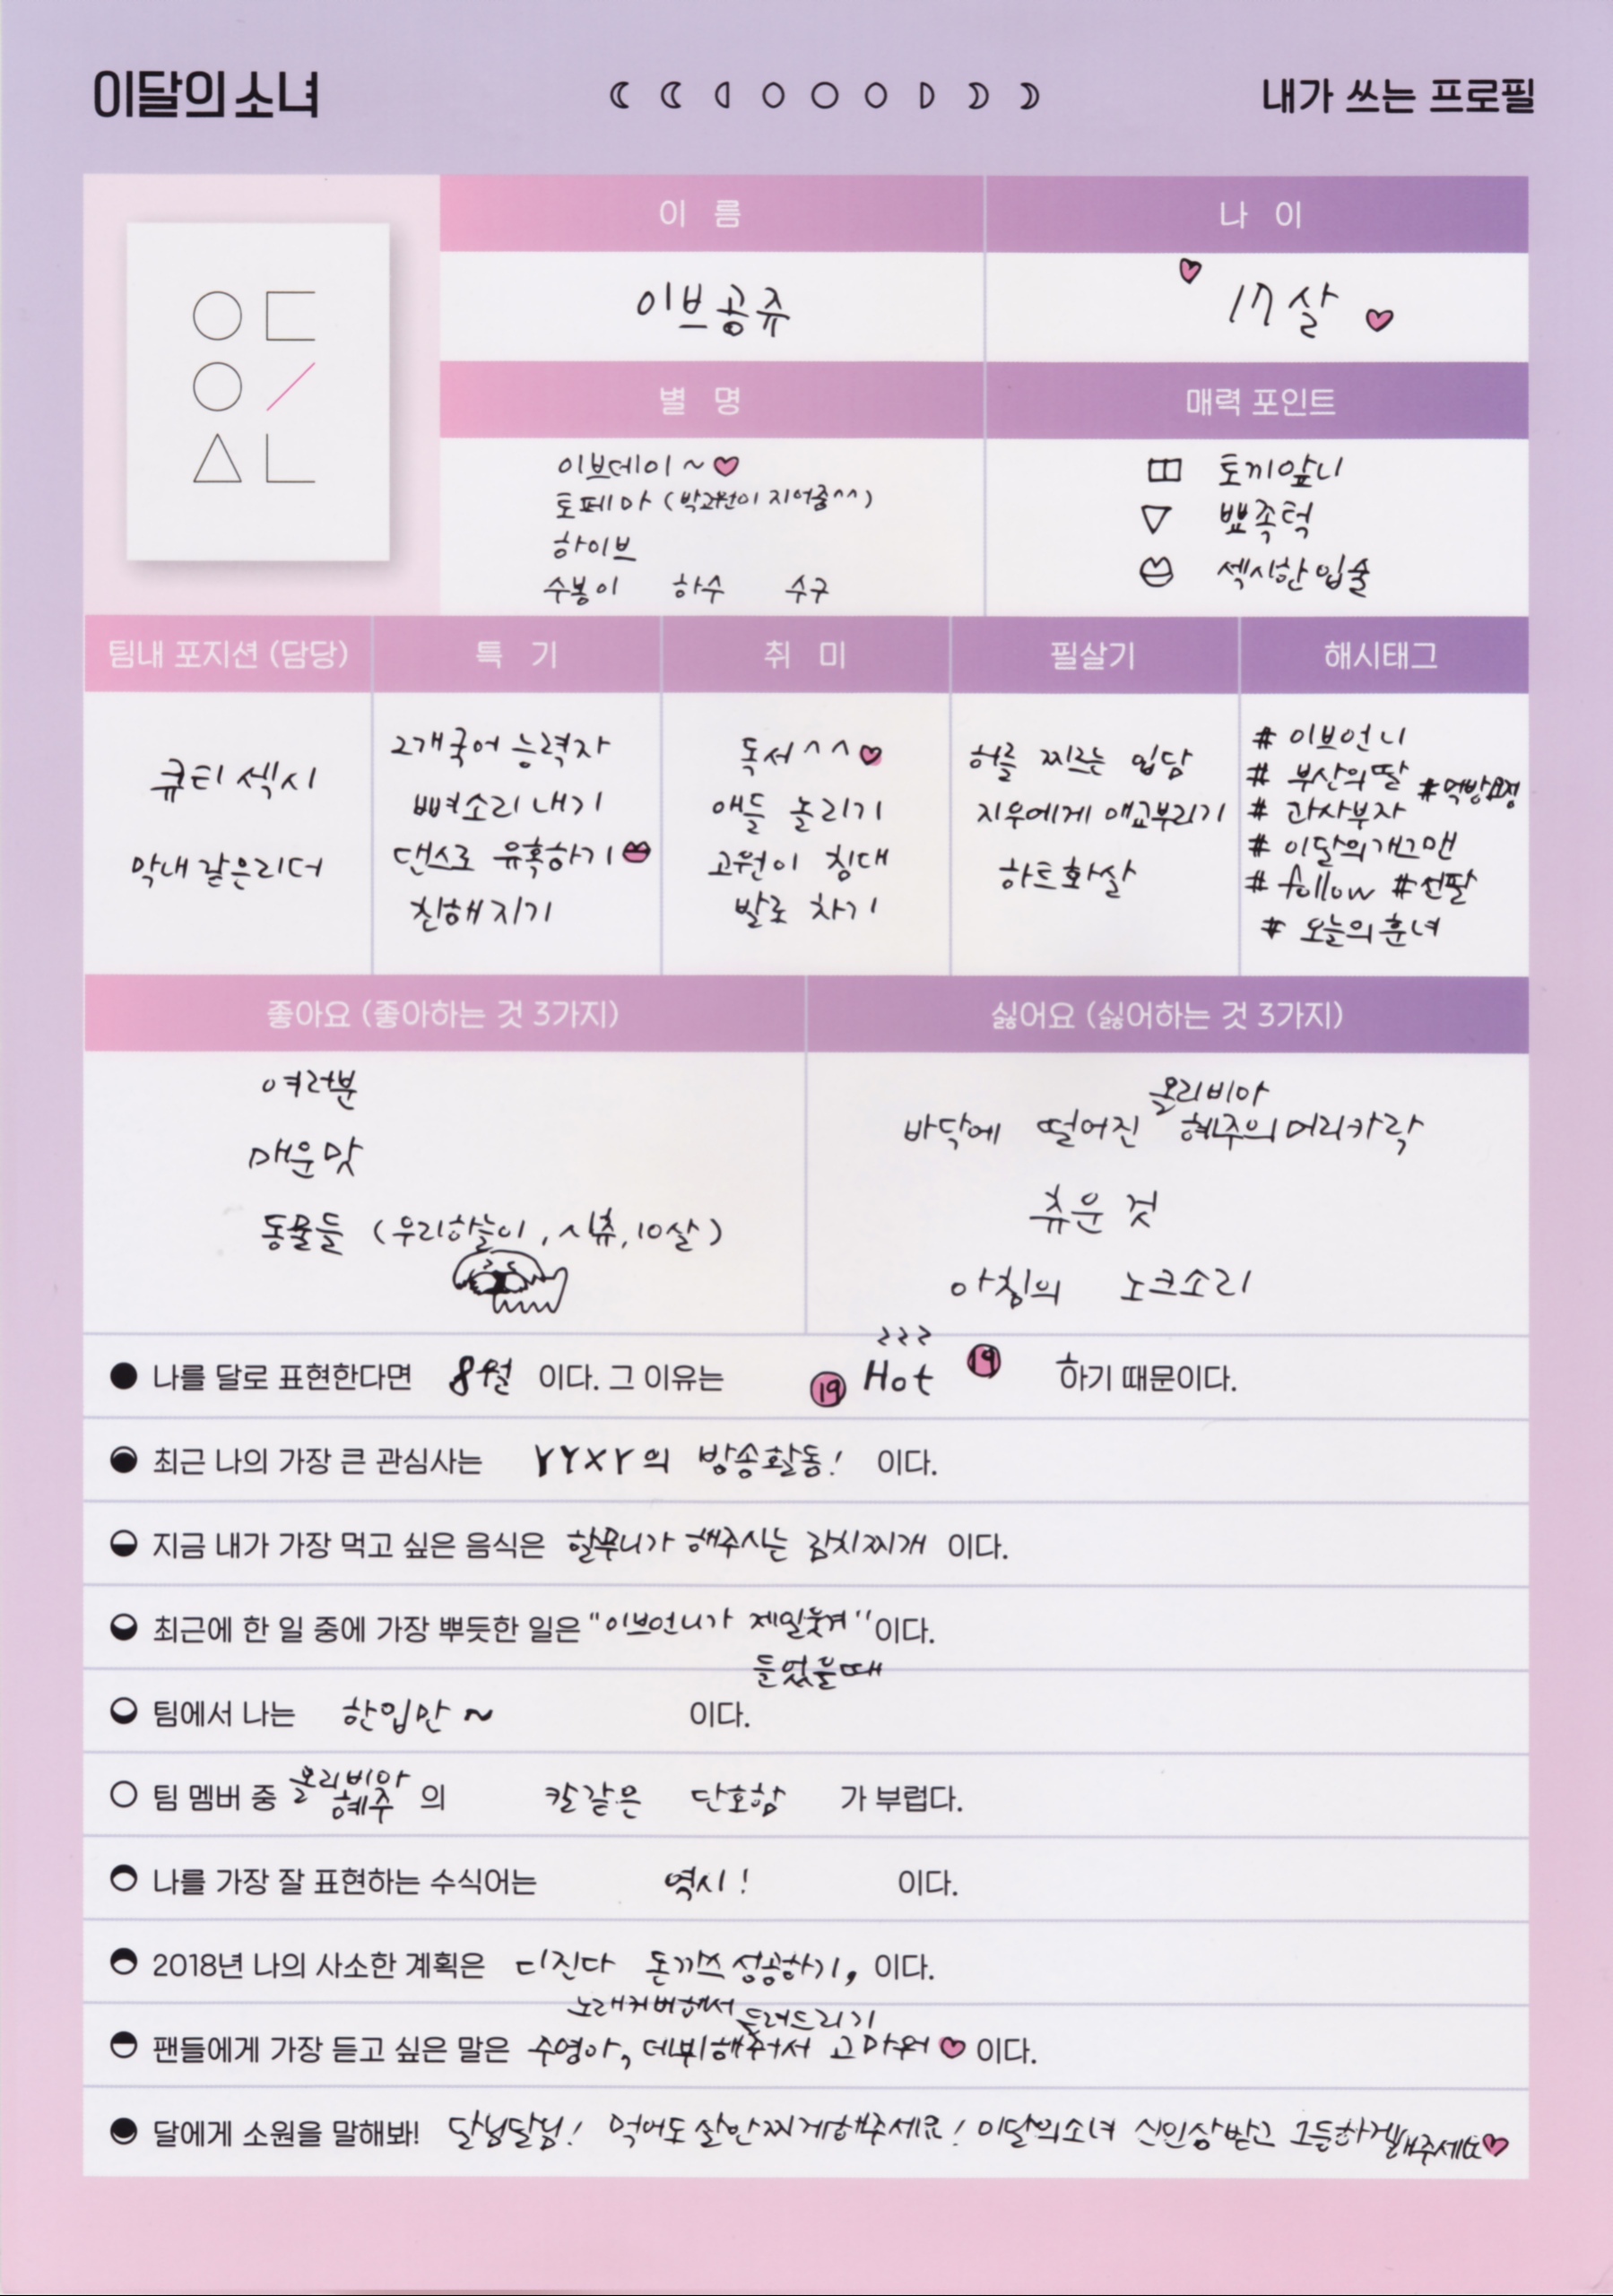 이달의 소녀
내가 쓰는 프로필
이 름
나 이
이브공쥬
17살
별 명
매력 포인트
이브데이~
토페마 (박고원이 지어줌^^)
하이브
수봉이 하수 수구
토끼앞니
뾰족턱
섹시한 입술
팀내 포지션 (담당)
특 기
취 미
필살기
해시태그
큐티 섹시
막내 같은 리더
2개국어 능력자
뼈소리 내기
댄스로 유혹하기
친해지기
독서^^
애들 놀리기
고원이 침대
발로 차기
허를 찌르는 입담
지우에게 애교부리기
하트화살
# 이브언니
# 부산의딸 #먹방요정
# 과사부자
# 이달의개그맨
# follow #선팔
# 오늘의훈녀
좋아요 (좋아하는 것 3가지)
싫어요 (싫어하는 것 3가지)
여러분
매운맛
동물들 (우리하늘이, 시츄, 10살)
올리비아
바닥에 떨어진 혜주의 머리카락
츄운 것
아침의 노크소리
나를 달로 표현한다면 8월 이다. 그 이유는 19 Hot 19 하기 때문이다.
최근 나의 가장 큰 관심사는 YYXY의 방송활동! 이다.
지금 내가 가장 먹고 싶은 음식은 할무니가 해주시는 김치찌개 이다.
최근에 한 일 중에 가장 뿌듯한 일은 "이브언니가 제일웃겨" 이다.
들었을때
팀에서 나는 한입만~ 이다.
팀 멤버 중 올리비아 혜주 의 칼같은 단호함 가 부럽다.
나를 가장 잘 표현하는 수식어는 역시! 이다.
2018년 나의 사소한 계획은 디진다 돈까쓰 성공하기, 이다.
노래커버해서 들려드리기
팬들에게 가장 듣고 싶은 말은 수영아, 데뷔해줘서 고마워 이다.
달에게 소원을 말해봐! 달님달님! 먹어도 살안찌게해주세요! 이달의소녀 신인상받고 1등하게해주세요